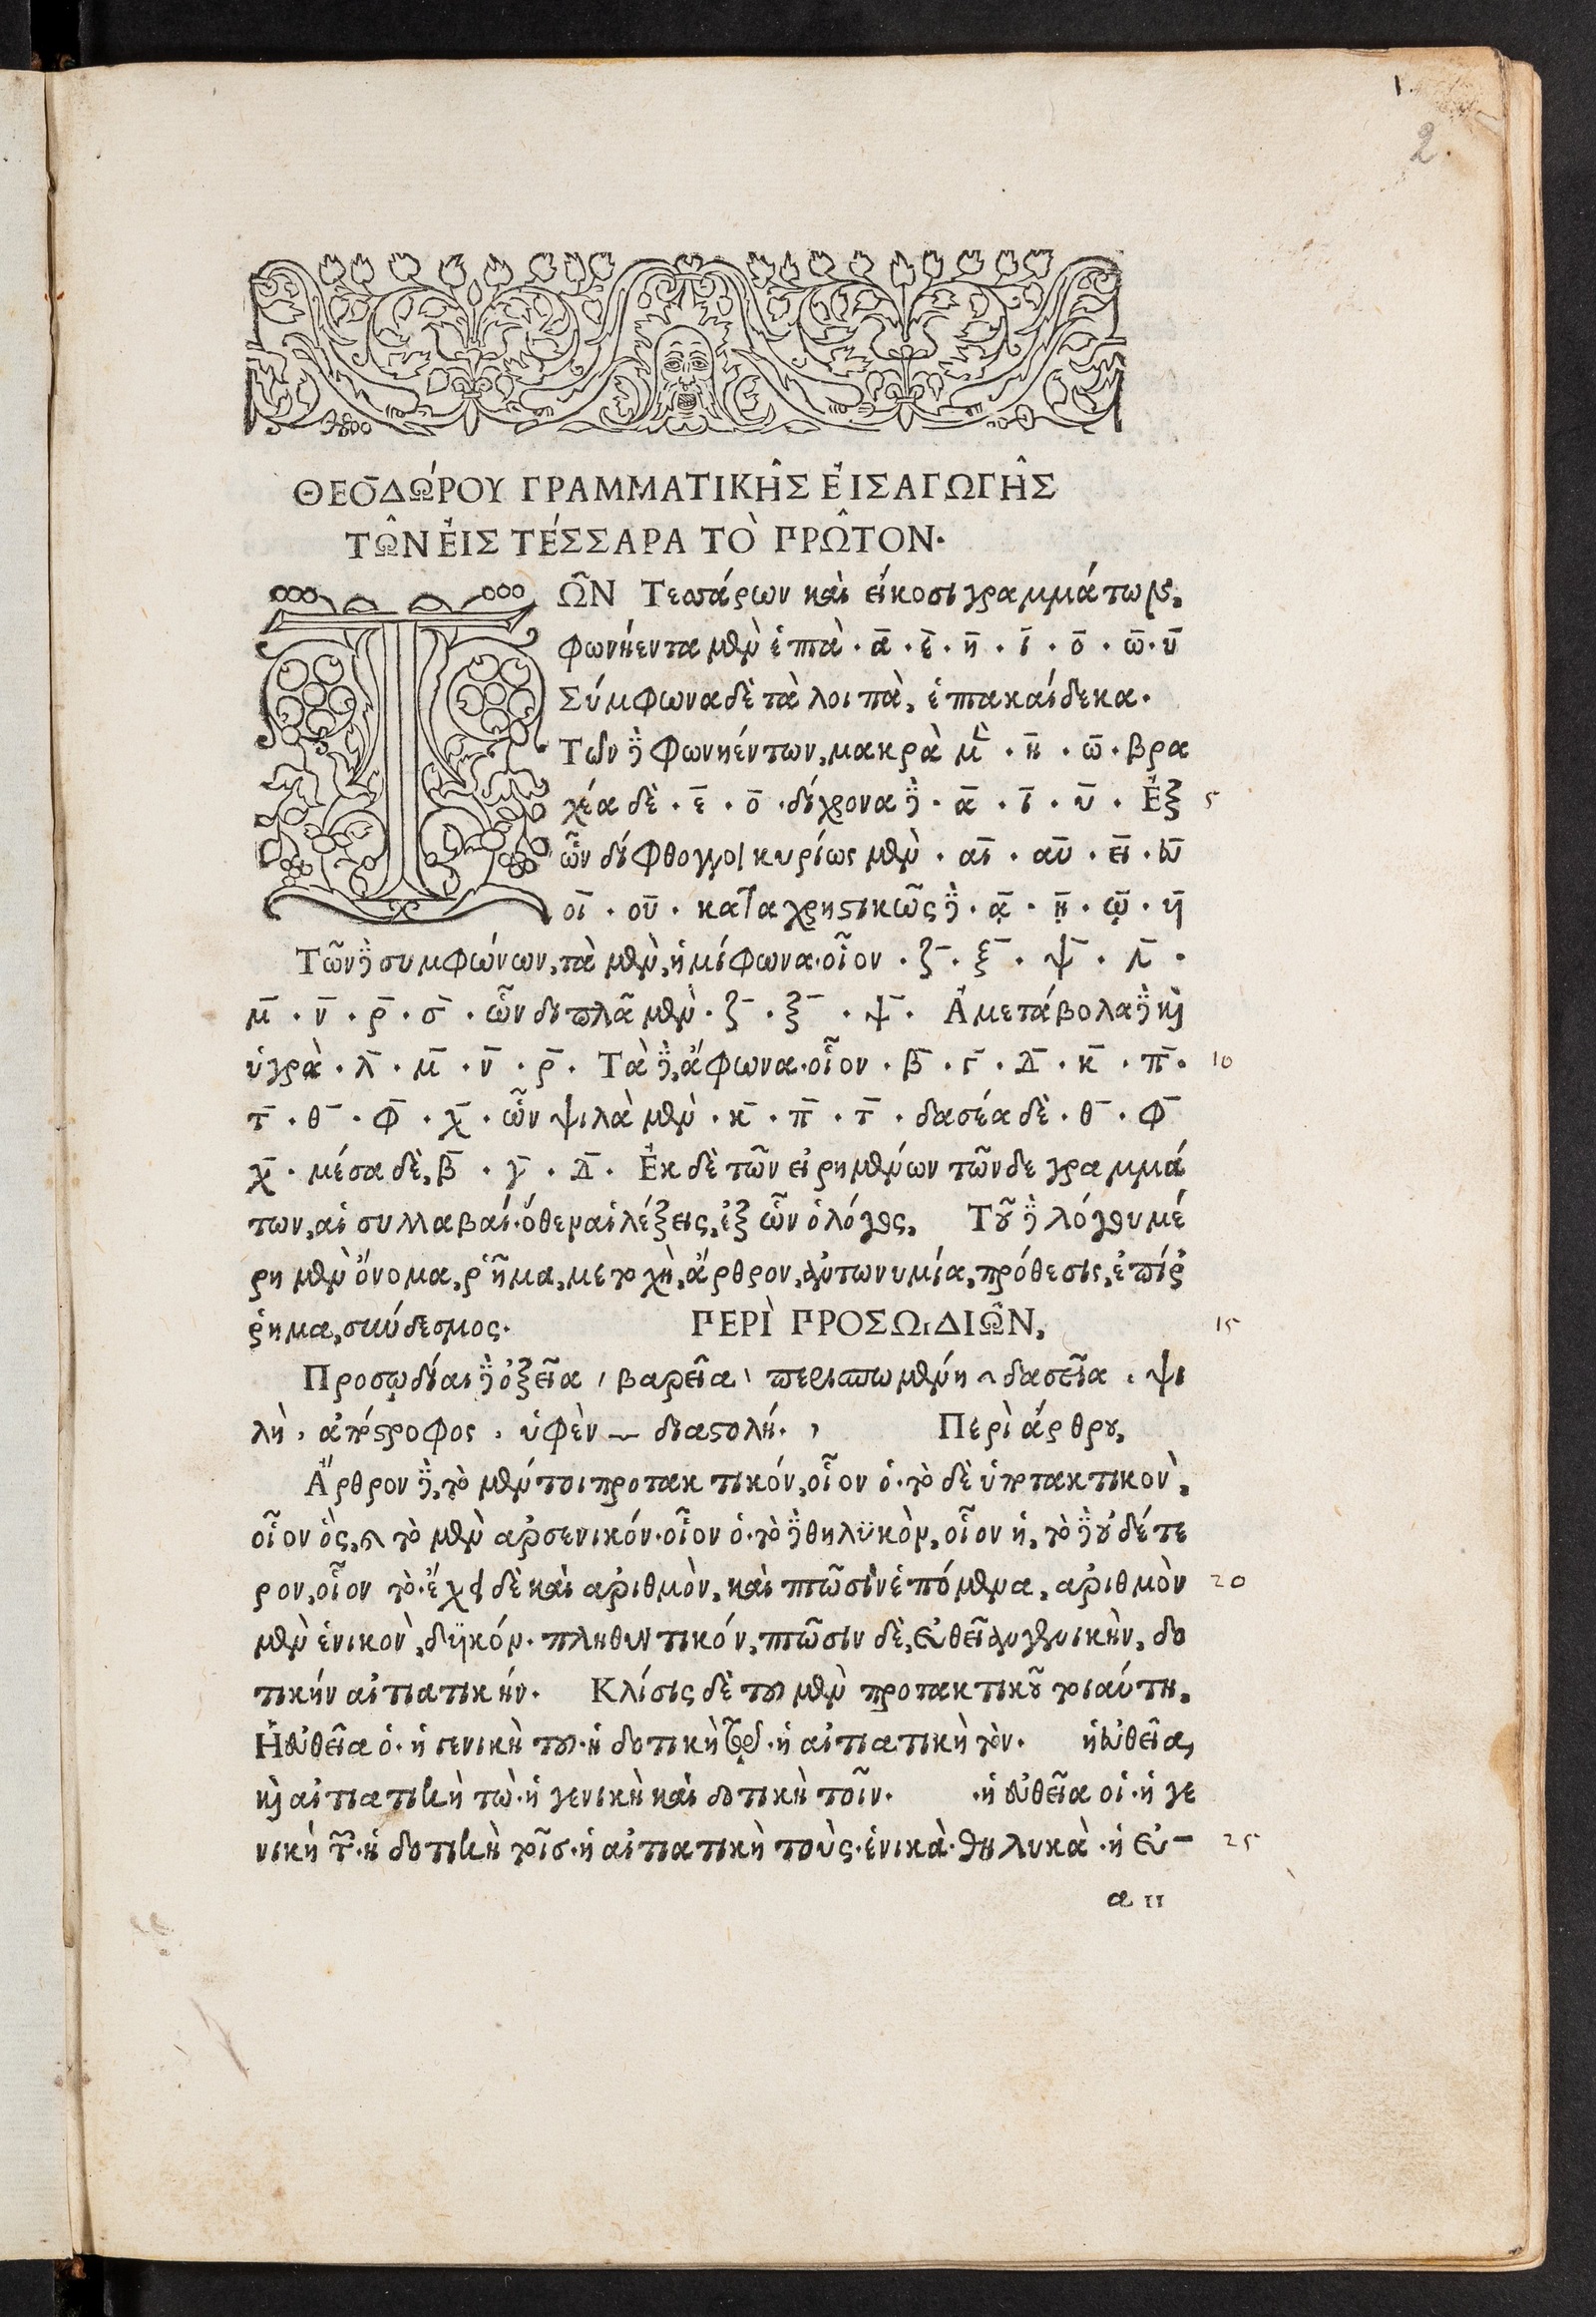 1.
2.
ΘΕΟΔΩ´ΡΟΥ ΓΡΑΜΜΑΤΙΚΗ͂Σ ἘΙΣΑΓΩΓΗ͂Σ
ΤΩ͂Ν ἘΙΣ ΤΈΣΣΑΡΑ ΤῸ ΠΡΩ͂ΤΟΝ·
ΤΩ͂Ν Τεσσάρων καὶ εἴκοσι γραμμάτων,
φωνήεντα μὲν ἑπτὰ · α̅ · ε̅ · η̅ · ι̅ · ο̅ · ω̅ · υ̅
Σύμφωνα δὲ τὰ λοιπὰ, ἑπτακαίδεκα·
Τῶν δὲ φωνηέντων, μακρὰ μὲν · η̅ · ω̅ · βρα
χέα δὲ · ε̅ · ο̅ · δίχρονα δὲ · α̅ · ι̅ · υ̅ · Ἐξ 5
ὧν δίφθογγοι κυρίως μὲν · αι̅ · αυ̅ · ει̅ · ευ̅
οι̅ · ου̅ · καταχρηστικῶς δὲ · ᾳ̅ · ῃ̅ · ῳ̅ · ηυ̅
Τῶν δὲ συμφώνων, τὰ μὲν, ἡμίφωνα· οἷον · ζ̅ · ξ̅ · ψ̅ · λ̅ ·
μ̅ · ν̅ · ρ̅ · σ̅ · ὧν διπλᾶ μὲν · ζ̅ · ξ̅ · ψ̅ · Ἀμετάβολα δὲ καὶ
ὑγρὰ · λ̅ · μ̅ · ν̅ · ρ̅ · Τὰ δὲ, ἄφωνα· οἷον · β̅ · γ̅ · δ̅ · κ̅ · π̅ · 10
τ̅ · θ̅ · φ̅ · χ̅ · ὧν ψιλὰ μὲν · κ̅ · π̅ · τ̅ · δασέα δὲ · θ̅ · φ̅
χ̅ · μέσα δὲ, β̅ · γ̅ · δ̅ · Ἐκ δὲ τῶν εἰρημένων τῶνδε γραμμά
των, αἱ συλλαβαί· ὅθεν αἱ λέξεις, ἐξ ὧν ὁ λόγος, Τοῦ δὲ λόγου μέ
ρη μὲν ὄνομα, ῥῆμα, μετοχὴ, ἄρθρον, ἀντωνυμία, πρόθεσις, ἐπίῤ
ῥημα, σύνδεσμος· ΠΕΡῚ ΠΡΟΣΩιΔΙΩ͂Ν, 15
Προσῳδίαι δὲ ὀξεῖα ´ βαρεῖα ` περισπωμένη ῀ δασεῖα ῾ ψι
λὴ ᾿ ἀπόστροφος ’ ὑφὲν ‿ διαστολή· , Περὶ ἄρθρου,
Ἄρθρον δὲ, τὸ μέντοι προτακτικόν, οἷον ὁ· τὸ δὲ ὑποτακτικὸν,
οἷον ὃς, καὶ τὸ μὲν ἀρσενικόν· οἷον ὁ· τὸ δὲ θηλϋκὸν, οἷον ἡ, τὸ δὲ οὐδέτε
ρον, οἷον τὸ· ἔχει δὲ καὶ ἀριθμὸν, καὶ πτῶσιν ἑπόμενα, ἀριθμὸν 20
μὲν ἑνικὸν, δυϊκόν· πληθυντικόν, πτῶσιν δὲ, εὐθεῖαν γενικὴν, δο
τικήν αἰτιατικήν· Κλίσις δὲ του μὲν προτακτικοῦ τοιαύτη,
Ἡ εὐθεῖα ὁ· ἡ γενικὴ του· ἡ δοτικὴ τῷ· ἡ αἰτιατικὴ τὸν· ἡ εὐθεῖα,
καὶ αἰτιατικὴ τὼ· ἡ γενικὴ καὶ δοτικὴ τοῖν· ·ἡ εὐθεῖα οἱ· ἡ γε
νικὴ τῶν· ἡ δοτικὴ τοῖς· ἡ αἰτιατικὴ τοὺς· ἑνικὰ· θηλυκὰ · ἡ εὐ- 25
a II